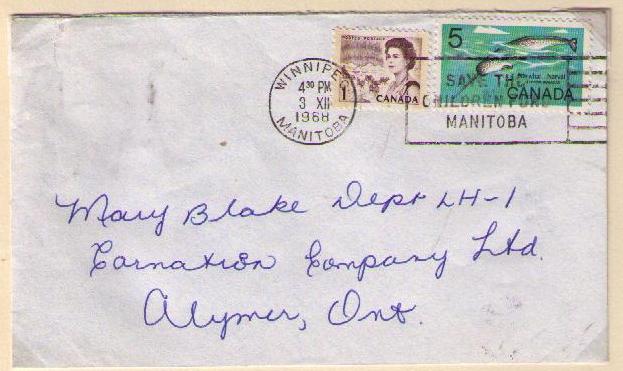 WINNIPEG
4³⁰ PM
3 XII
1968
MANITOBA
POSTES POSTAGE
1
CANADA
5
Narwhal narval
CANADA
SAVE THE
CHILDREN FUND
MANITOBA
Mary Blake Dept LH-1
Carnation Company Ltd.
Alymer, Ont.